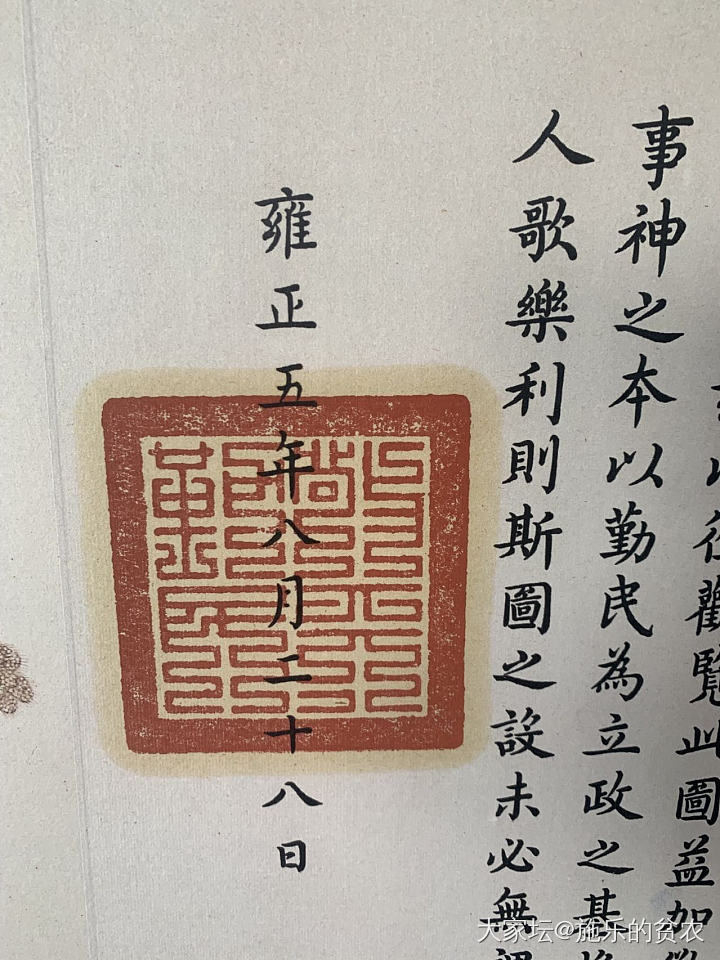 往觀覽此圖益加
事神之本以勤民為立政之基
人歌樂利則斯圖之設未必無
雍正五年八月二十八日
大家坛@施乐的贫农